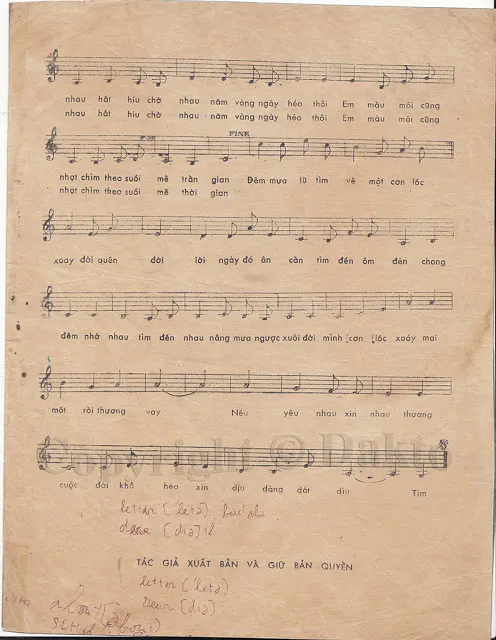 nhau hắt hiu chờ nhau năm vàng ngày héo thôi Em màu môi cũng
nhau hắt hiu chờ nhau - năm vàng ngày héo thôi Em màu môi cũng
FINE
nhạt chìm theo suối mê trần gian Đêm mưa lũ tìm về một cơn lốc
nhạt chìm theo suối mê thời gian
xoay đời quên đời lời ngày đó ân cần tìm đến ôm đèn chong
đêm nhớ nhau tìm đến nhau nắng mưa ngược xuôi đời mình [cơn [lốc xoáy mai
một rồi thương vay Nếu yêu nhau xin nhau thương
Copyright © Dakto
cuộc đời khổ héo xin dịu dàng dắt dìu Tìm
letter ['letə]
dear [diə]
TÁC GIẢ XUẤT BẢN VÀ GIỮ BẢN QUYỀN
letter ['letə].
Dear [diə].